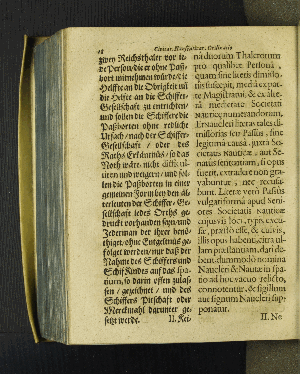 18 Civitat. Hanseaticar. Ordinatio
zween Reichsthaler vor je-
de Person/die er ohne Paß-
bort mitnehmen würde/die
Helffte an die Obrigkeit und
die Helfte an die Schiffer-
Gesellschafft zu entrichten/
und sollen die Schiffer die
Paßborten ohne redliche
Ursach/ nach der Schiffer-
Gesellschaft / oder des
Raths Erkäntnüs/ so das
Noth wäre, nicht
und weigern/ und sol-
len die Paßborten in einer
gemeinen Form bey den äl-
terleuten der Schiffer-Ge-
sellschaft jedes Orths ge-
druckt vorhanden seyn/und
Jederman der ihrer benö-
thiget/ohne Entgeltnüs ge-
folget werden/nur daß der
Nahme des Schiffers und
Schif Kindes auf das spa-
tium, so darin offen zulas-
sen / gezeichnet / und des
Schiffers Pitschaft oder
Merckmahl darunter ge-
setzt werde. II. Kei-
nam duorum Thalerorum
pro qualibet Persona,
quam sine literis dimisso-
riis suscepit, media ex par-
te Magistratui, & ex alte-
ra medietate Societati
Nauticæ numerandorum.
Et Naucleri literas tales di-
missorias seu Passus, sine
legitima causâ juxta So-
cietatis Nauticæ, aut Se-
natus sententiam, si opus
fuerit, extradere non gra-
vabuntur, nec recusa-
bunt. Literæ verò Passus
vulgari formâ apud Seni-
ores Societatis nauticæ
cujusvis loci, typis excu-
sæ, præsto esse, & cuivis,
illis opus habenti, citra ul-
lam præstantiam, dari de-
bent, dummodò nomina
Naucleri & Nautæ in spa-
tio ad hoc vacuo relicto,
connotentur, & sigillum
aut signum Naucleri sup-
ponatur.
II. No